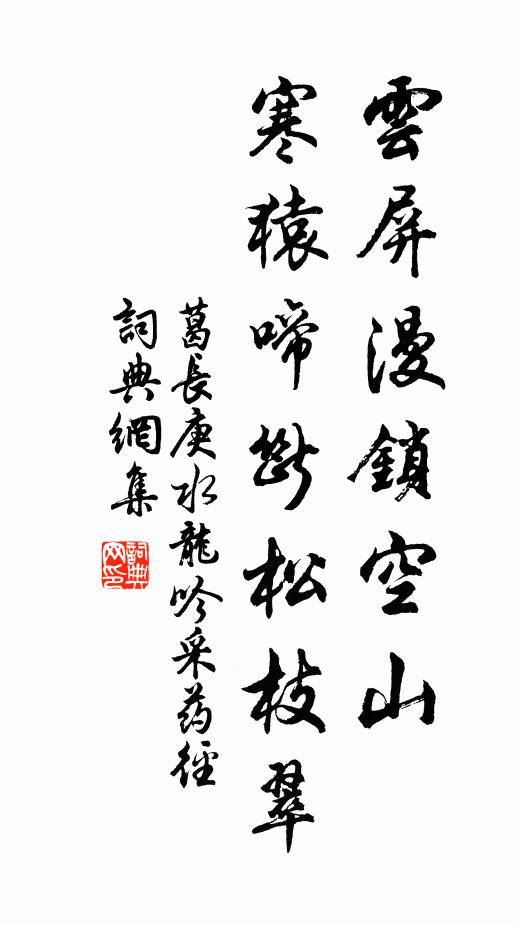 雲屏漫鎖空山
寒猿啼斷松枝翠
葛長庚水龍吟采药徑
詞典網集
詞典网印